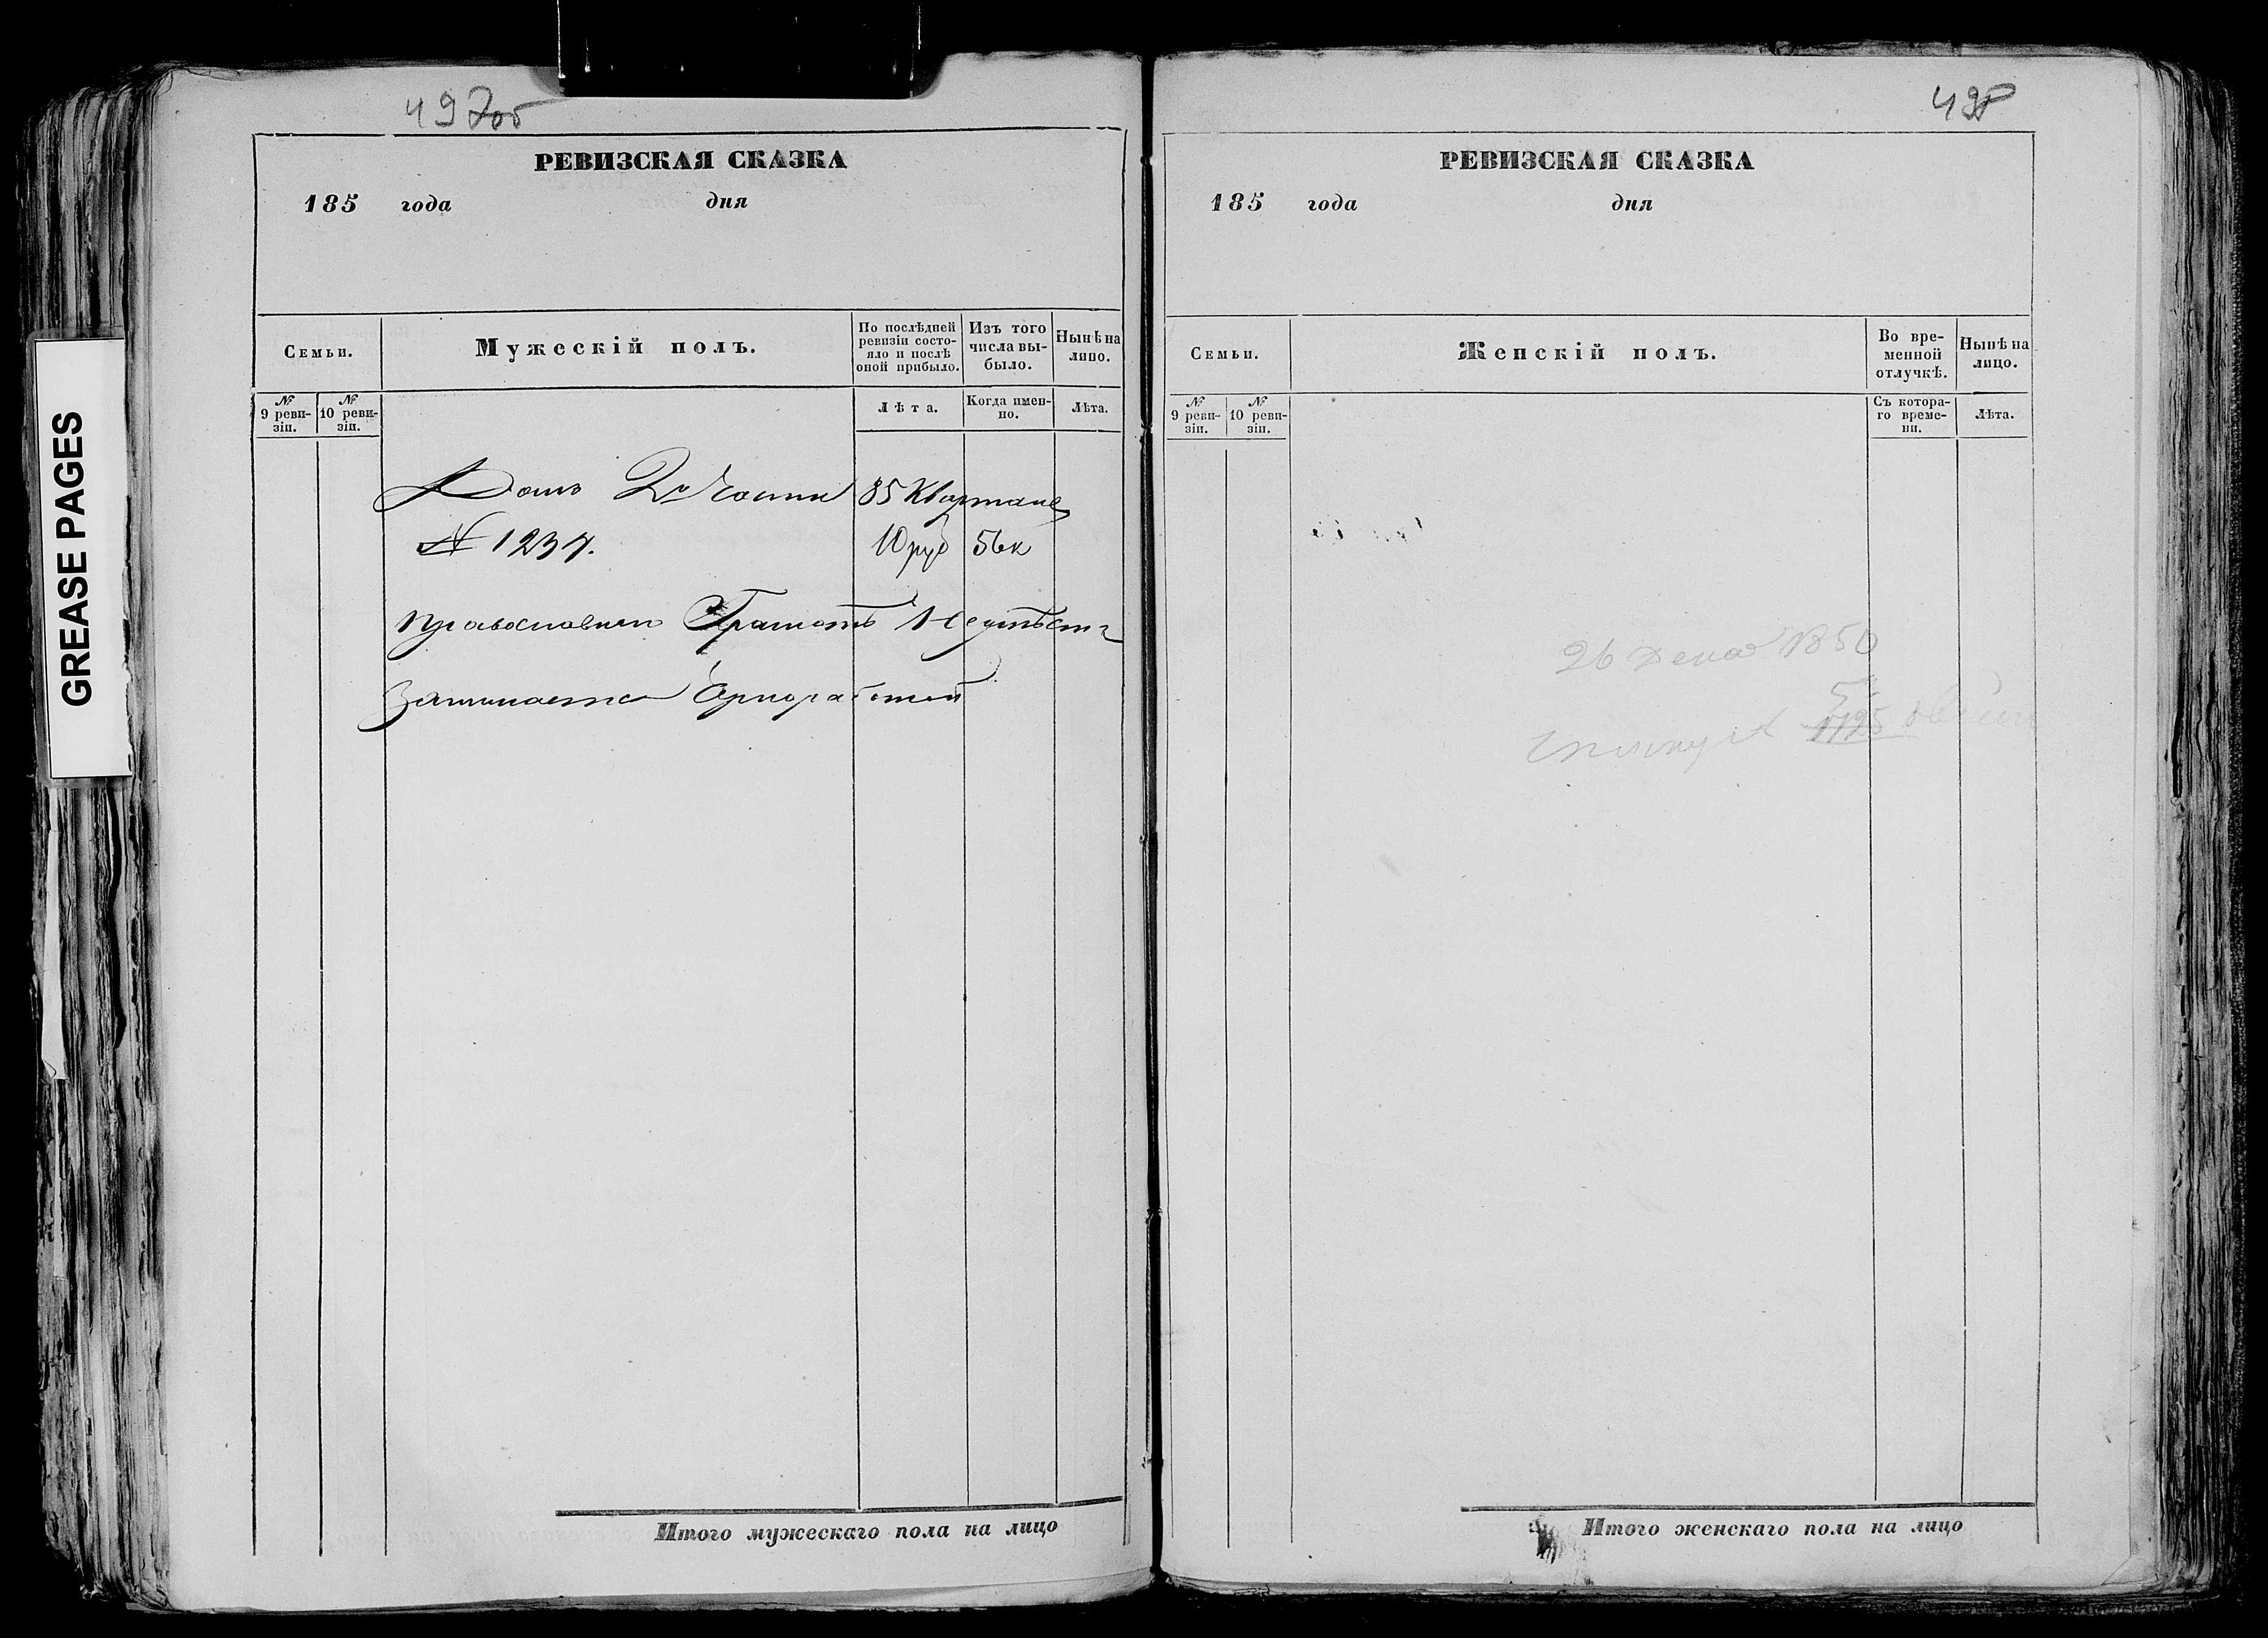 GREASE PAGES
497об
РЕВИЗСКАЯ СКАЗКА
185 года дня
Семьи.
Мужескій полъ.
По послѣдней ревизіи состояло и послѣ оной прибыло.
Изъ того числа выбыло.
Нынѣ на лицо.
№ 9 ревизіи.
№ 10 ревизіи.
Лѣта.
Когда именно.
Лѣта.
Домъ 2й части 85 Квартале
№ 1237.
10 руб 56 к
православнаго Грамотѣ Неумѣетъ
Занимается Черноработой
Итого мужескаго пола на лицо
498
РЕВИЗСКАЯ СКАЗКА
185 года дня
Семьи.
Женскій полъ.
Во временной отлучкѣ.
Нынѣ на лицо.
№ 9 ревизіи.
№ 10 ревизіи.
Съ котораго времени.
Лѣта.
26 Дека 1850
Итого женскаго пола на лицо